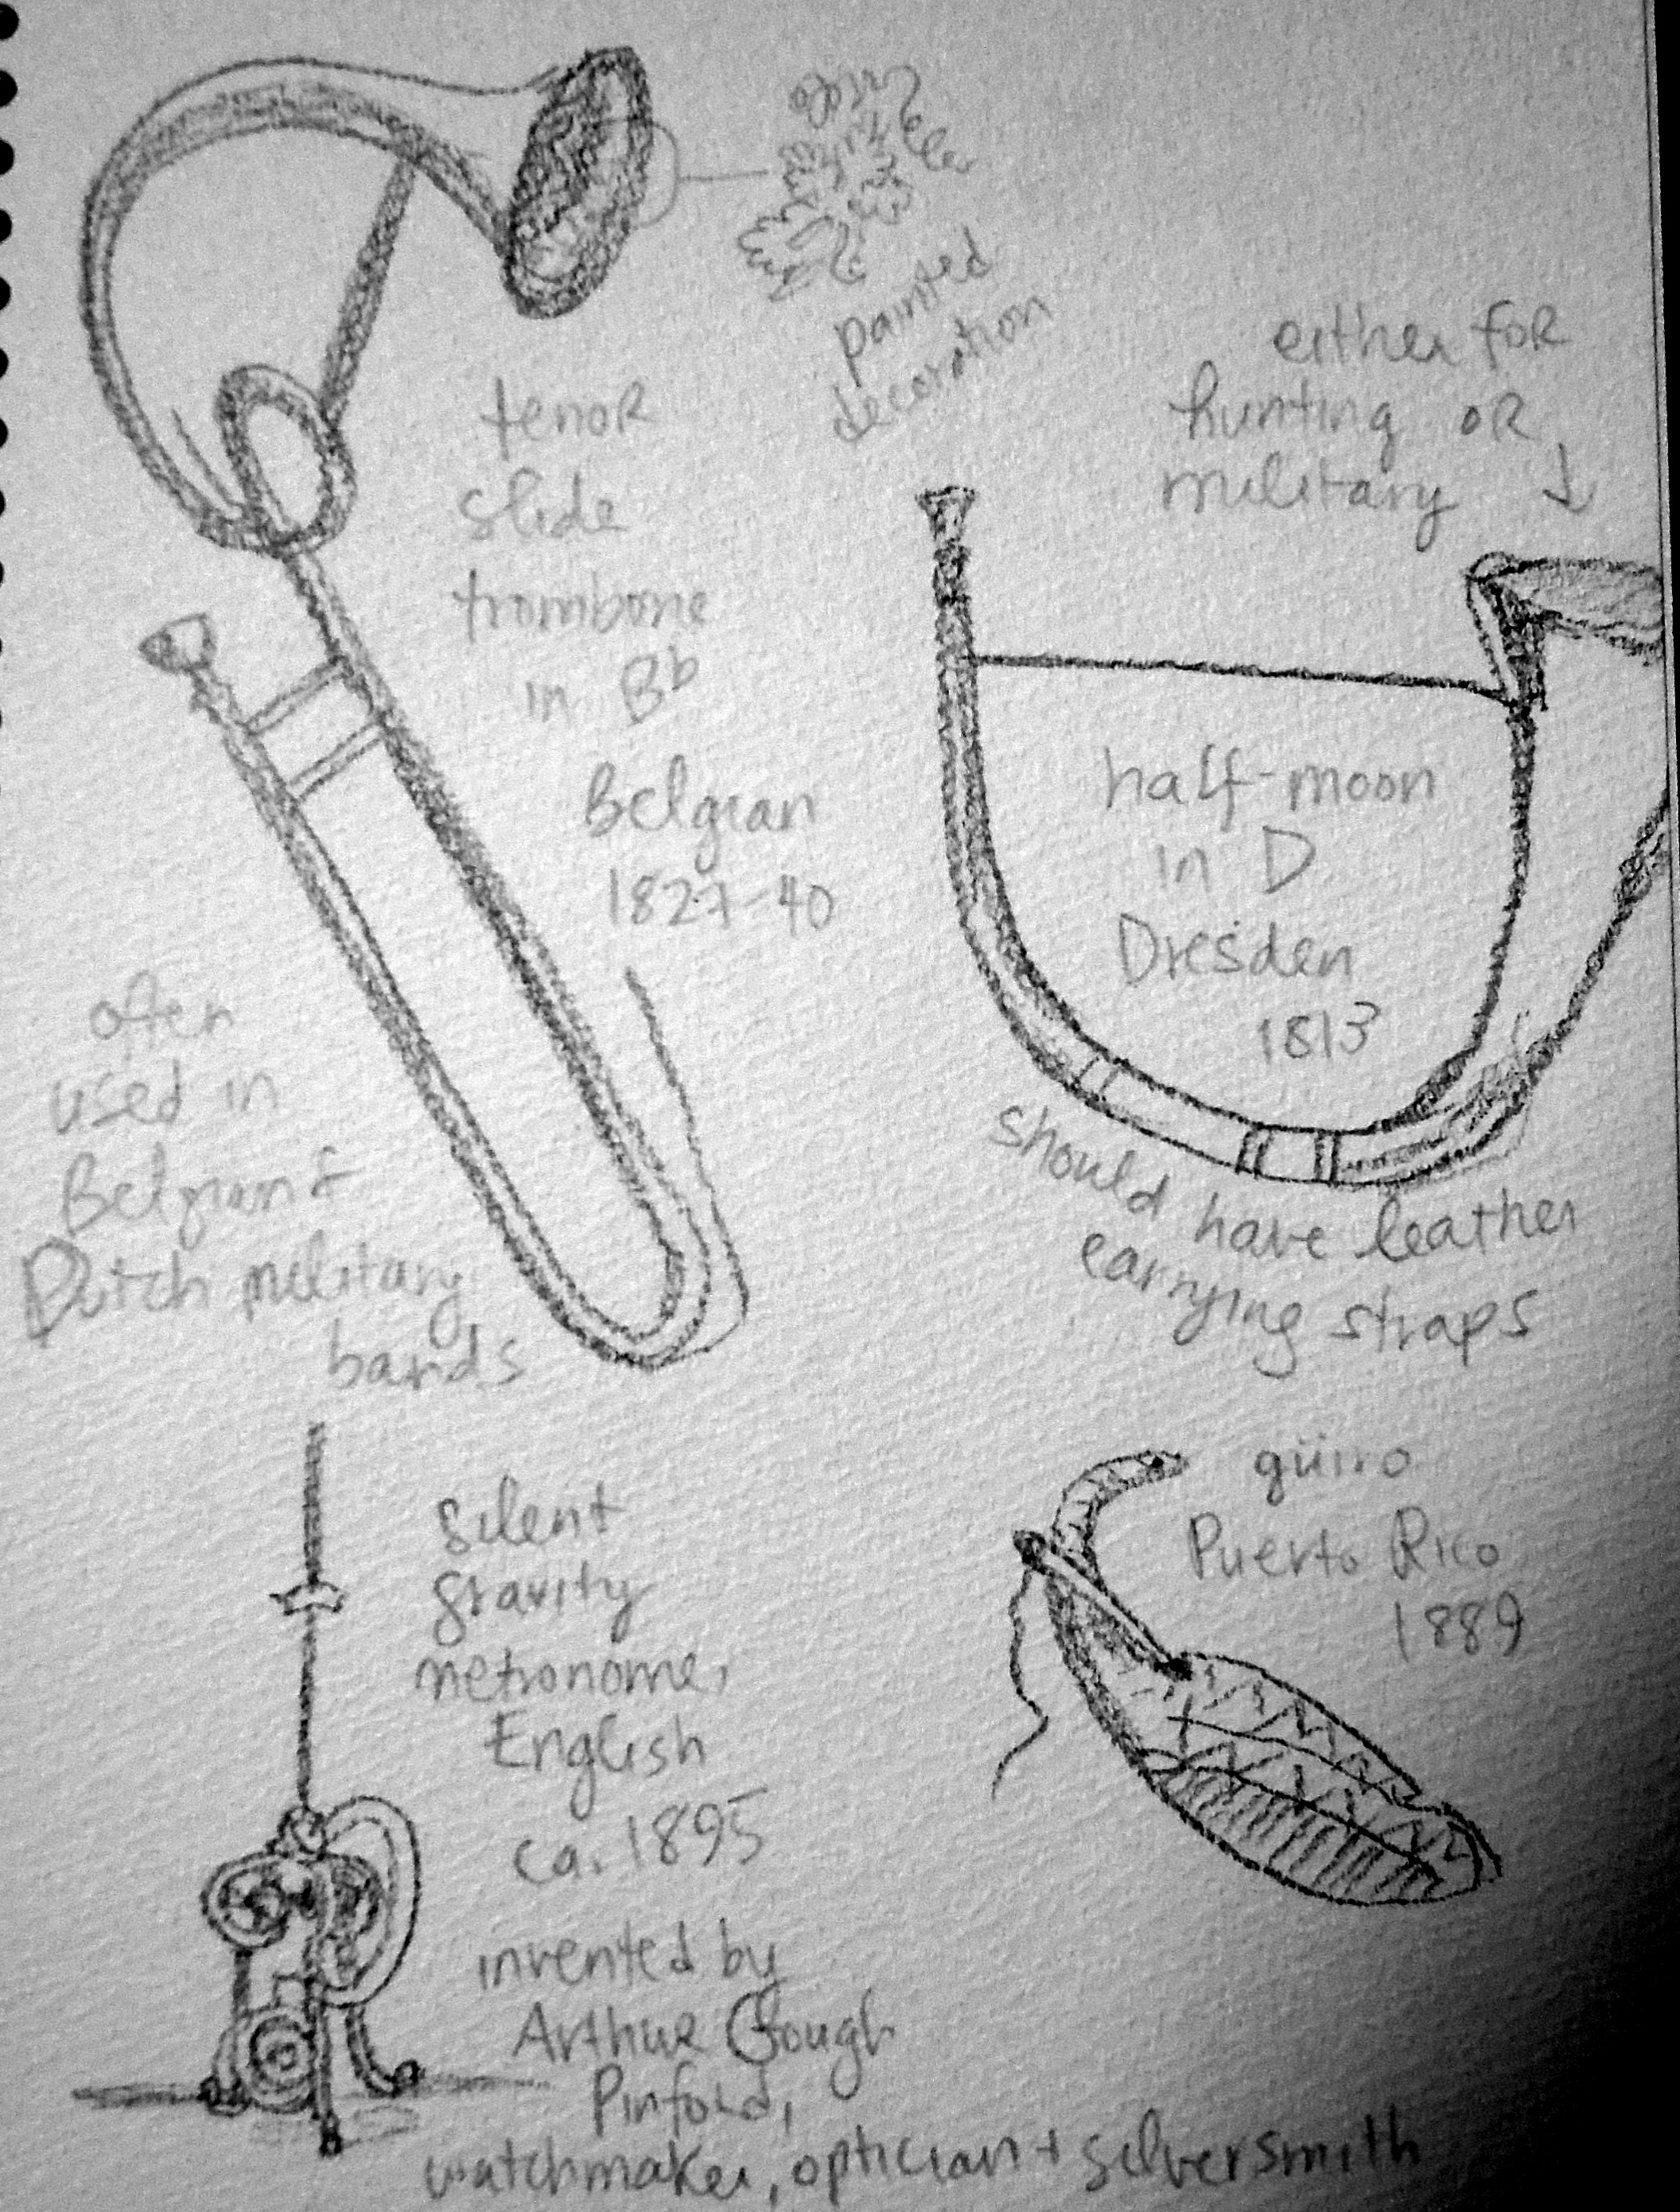 painted
decoration
tenor
slide
trombone
in Bb
Belgian
1827-40
often
used in
Belgian &
Dutch military
bands
either for
hunting or
military ↓
half-moon
in D
Dresden
1813
should have leather
carrying straps
silent
gravity
metronome,
English
ca. 1895
invented by
Arthur Gough
Pinfold,
watchmaker, optician + silversmith
güiro
Puerto Rico
1889